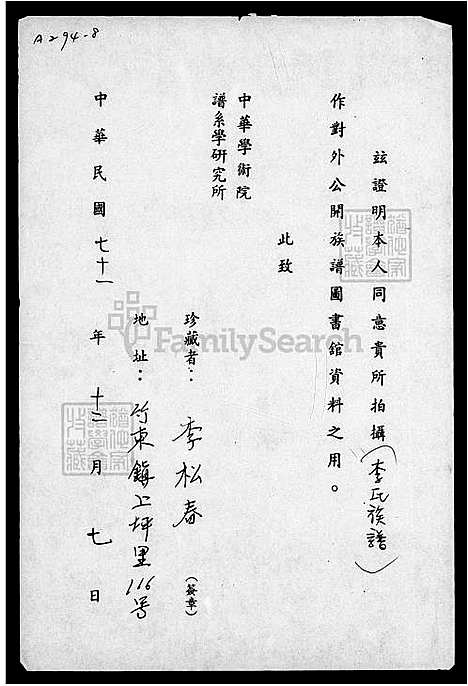 A294-8
茲證明本人同意貴所拍攝(李氏族譜)
作對外公開族譜圖書館資料之用。
此致
中華學術院
譜系學研究所
珍藏者：李松春(簽章)
地址：竹東鎮上坪里116号
中華民國七十一年十二月七日
FamilySearch